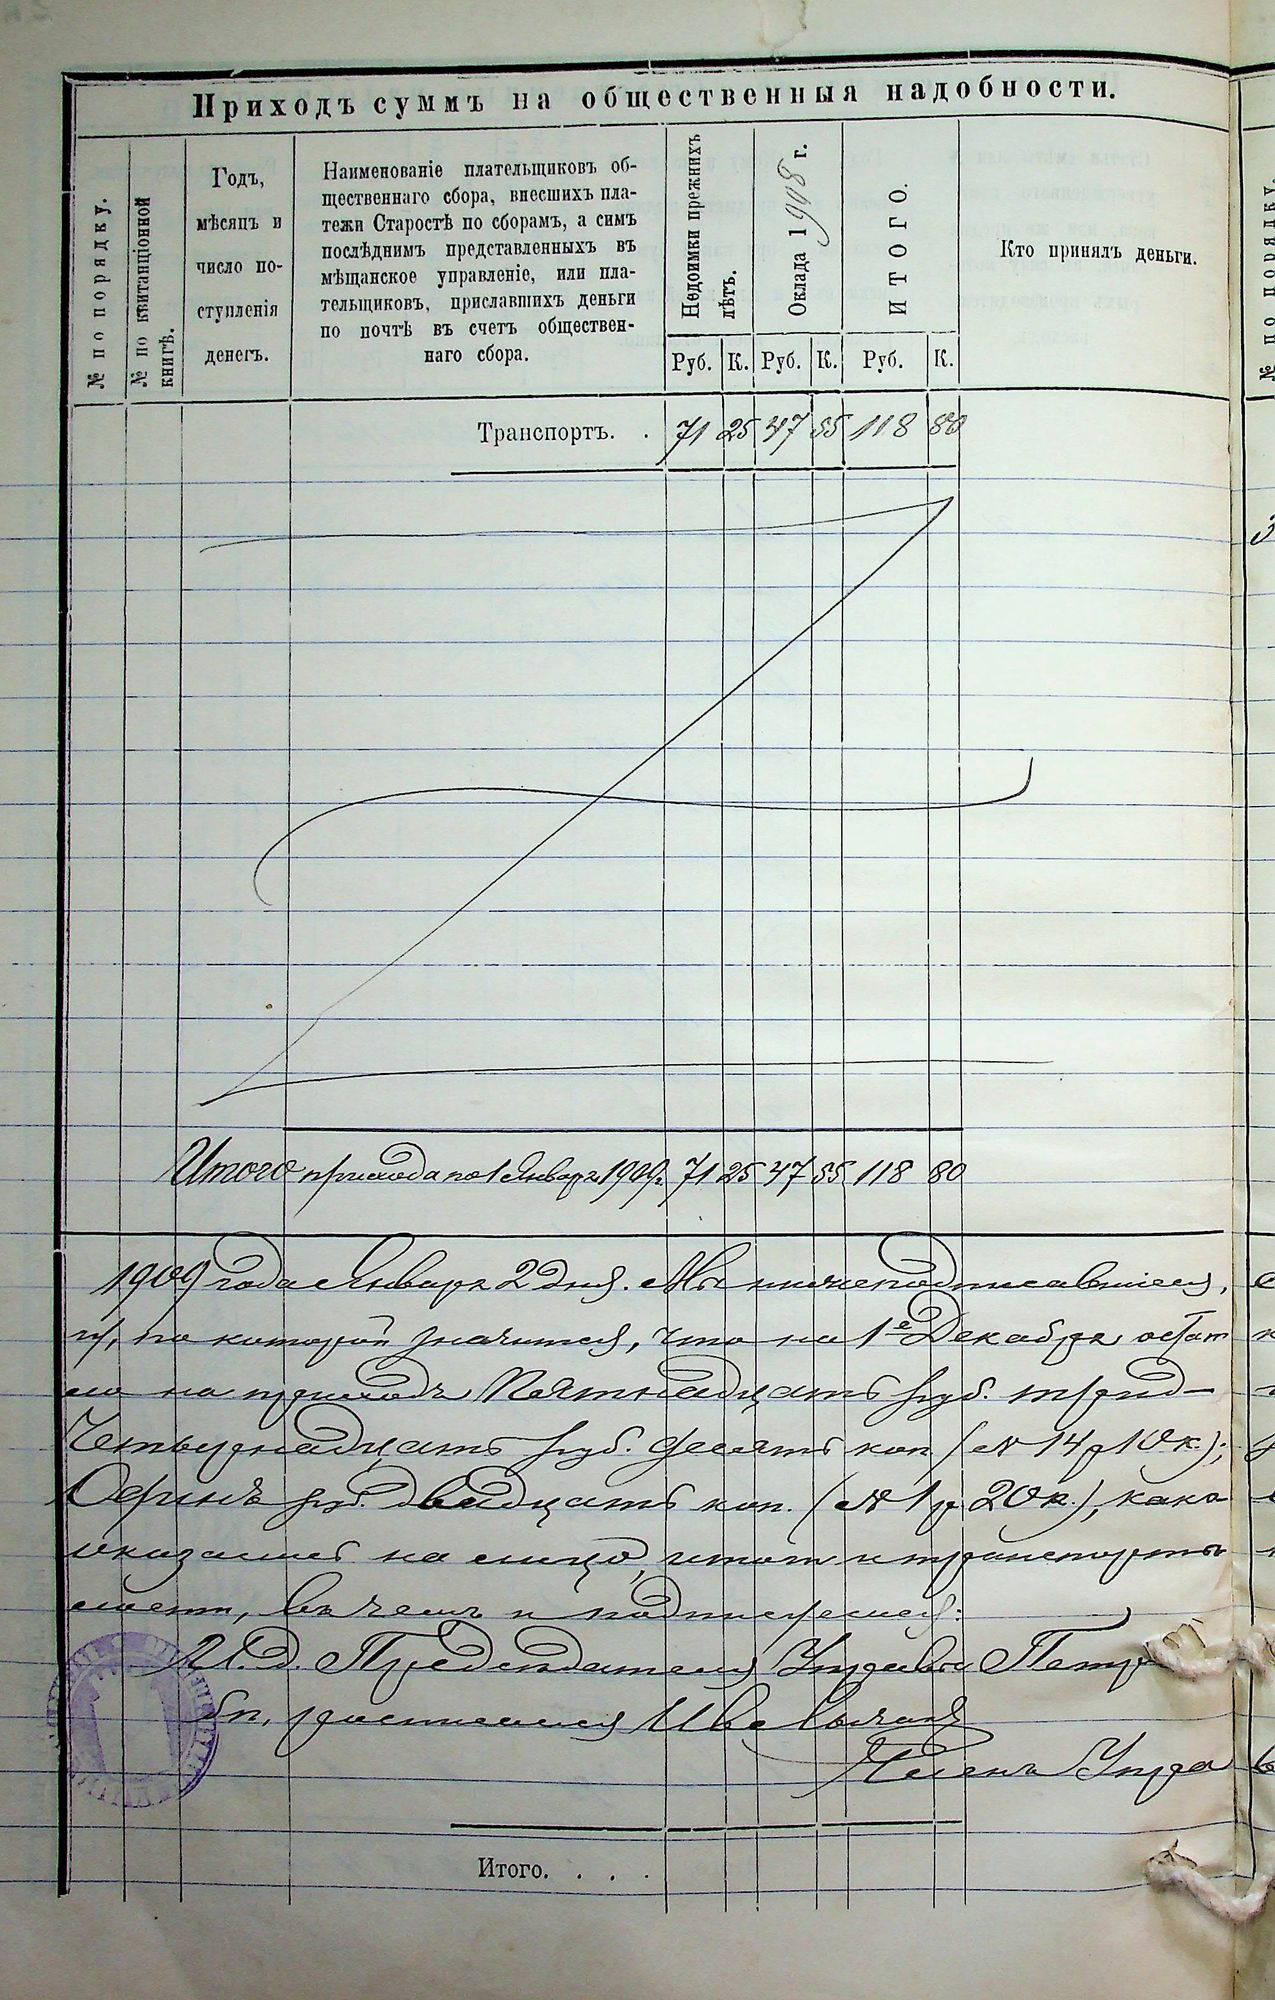 Приходъ суммъ на общественныя надобности.
№ по порядку.
№ по квитанціонной
книгѣ.
Годъ,
мѣсяцъ и
число по-
ступленія
денегъ.
Наименованіе плательщиковъ об-
щественнаго сбора, внесшихъ пла-
тежи Старостѣ по сборамъ, а симъ
послѣднимъ представленныхъ въ
мѣщанское управленіе, или пла-
тельщиковъ, приславшихъ деньги
по почтѣ въ счетъ обществен-
наго сбора.
Недоимки прежнихъ
лѣтъ.
Оклада 1908 г.
ИТОГО.
Кто принялъ деньги.
Руб. К. Руб. К. Руб. К.
Транспортъ. . 71 25 47 55 118 80
Итого прихода по 1 Января 1909 г. 71 25 47 55 118 80
1909 года Января 2 дня. Мы нижеподписавшіеся,
по которой значится, что на 1е Декабря остат
на приходъ Пятнадцать руб. трид-
Четырнадцать руб. десять коп. (14 р 10 к.);
Одинъ руб. двадцать коп. (1 р 20 к.), како
оказалось на лицо, итоги и транспорты
въ чемъ и подписуемся:
И. д. Предсѣдателя Управы Петр
Членъ Упра
Итого. . . .
№ по порядку.